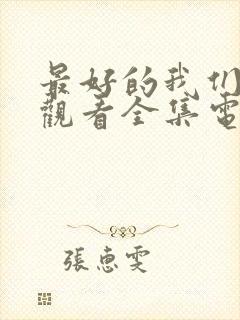 最好的我们
觀看全集電
張惠雯